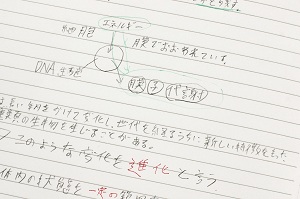 エネルギー
細胞
膜でおおわれている。
DNA
膜 代謝
長い年月をかけて変化し、世代を超えるうちに 新しい特徴をもった
生物が生じることがある。
このような変化を進化と言う
体内の状態を一定の範囲